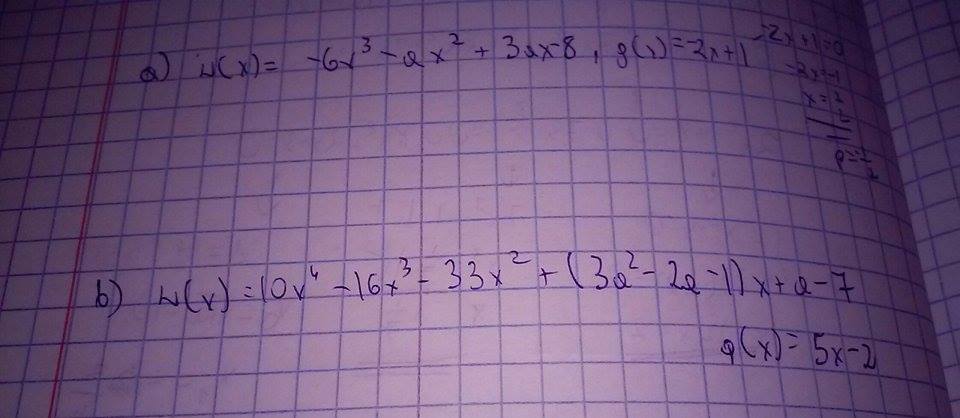 a) w(x) = -6x³ - ax² + 3ax-8, g(x) = -2x+1
-2x+1=0
-2x=-1
x = 1/2
p = 1/2
b) w(x) = 10x⁴ - 16x³ - 33x² + (3a² - 2a - 1)x + a - 7
g(x) = 5x-2